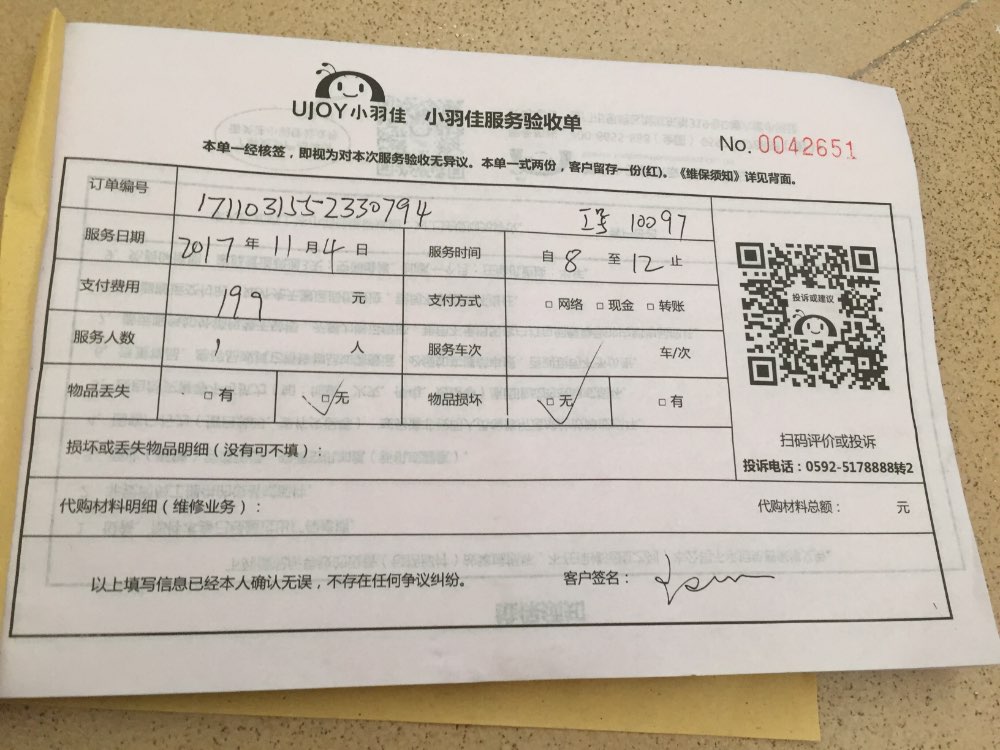 UJOY小羽佳 小羽佳服务验收单
No. 0042651
本单一经核签，即视为对本次服务验收无异议。本单一式两份，客户留存一份(红)。《维保须知》详见背面。
订单编号 1711031552330794 工号 10097
服务日期 2017 年 11 月 4 日 服务时间 自 8 至 12 止
支付费用 199 元 支付方式 □ 网络 □ 现金 □ 转账
服务人数 1 人 服务车次 车/次
物品丢失 □ 有 □ 无 物品损坏 □ 无 □ 有
损坏或丢失物品明细（没有可不填）：
投诉或建议
扫码评价或投诉
投诉电话：0592-5178888转2
代购材料明细（维修业务）： 代购材料总额： 元
以上填写信息已经本人确认无误，不存在任何争议纠纷。 客户签名：